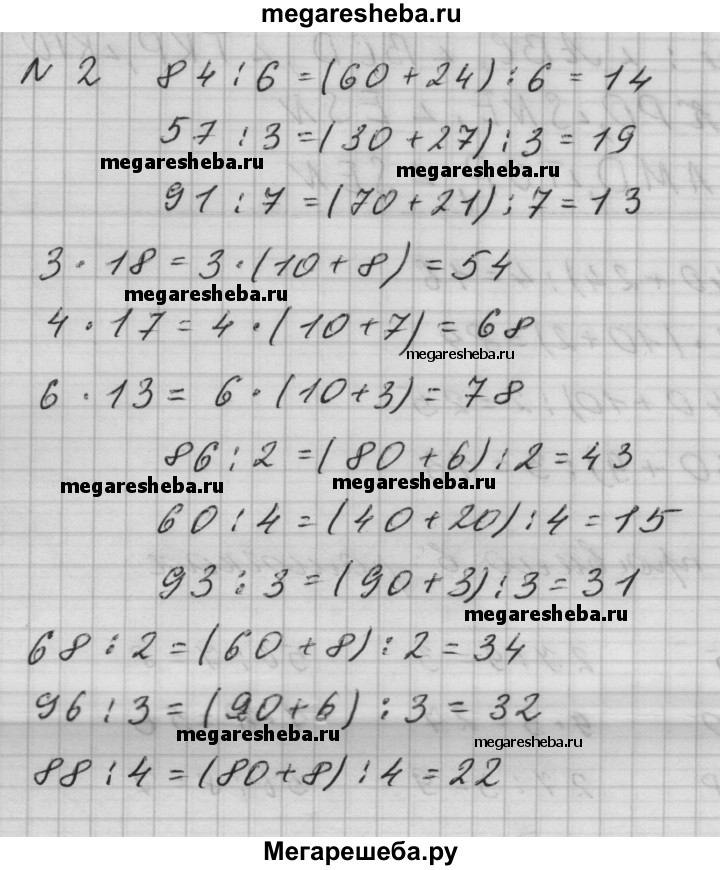 megaresheba.ru
N 2 84 : 6 = (60 + 24) : 6 = 14
57 : 3 = (30 + 27) : 3 = 19
megaresheba.ru megaresheba.ru
91 : 7 = (70 + 21) : 7 = 13
3 · 18 = 3 · (10 + 8) = 54
megaresheba.ru
4 · 17 = 4 · (10 + 7) = 68
megaresheba.ru
6 · 13 = 6 · (10 + 3) = 78
86 : 2 = (80 + 6) : 2 = 43
megaresheba.ru megaresheba.ru
60 : 4 = (40 + 20) : 4 = 15
93 : 3 = (90 + 3) : 3 = 31
megaresheba.ru
68 : 2 = (60 + 8) : 2 = 34
96 : 3 = (90 + 6) : 3 = 32
megaresheba.ru megaresheba.ru
88 : 4 = (80 + 8) : 4 = 22
Мегарешеба.ру